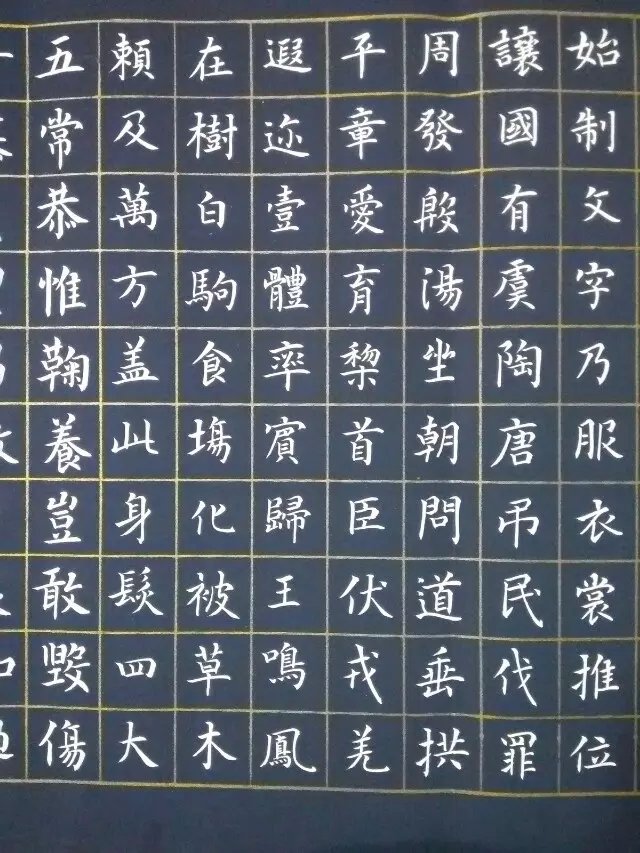 始制文字乃服衣裳推位
讓國有虞陶唐吊民伐罪
周發殷湯坐朝問道垂拱
平章愛育棃首臣伏戎羌
遐迩壹體率賓歸王鳴鳳
在樹白駒食場化被草木
頼及萬方盖此身髮四大
五常恭惟鞠養豈敢毀傷